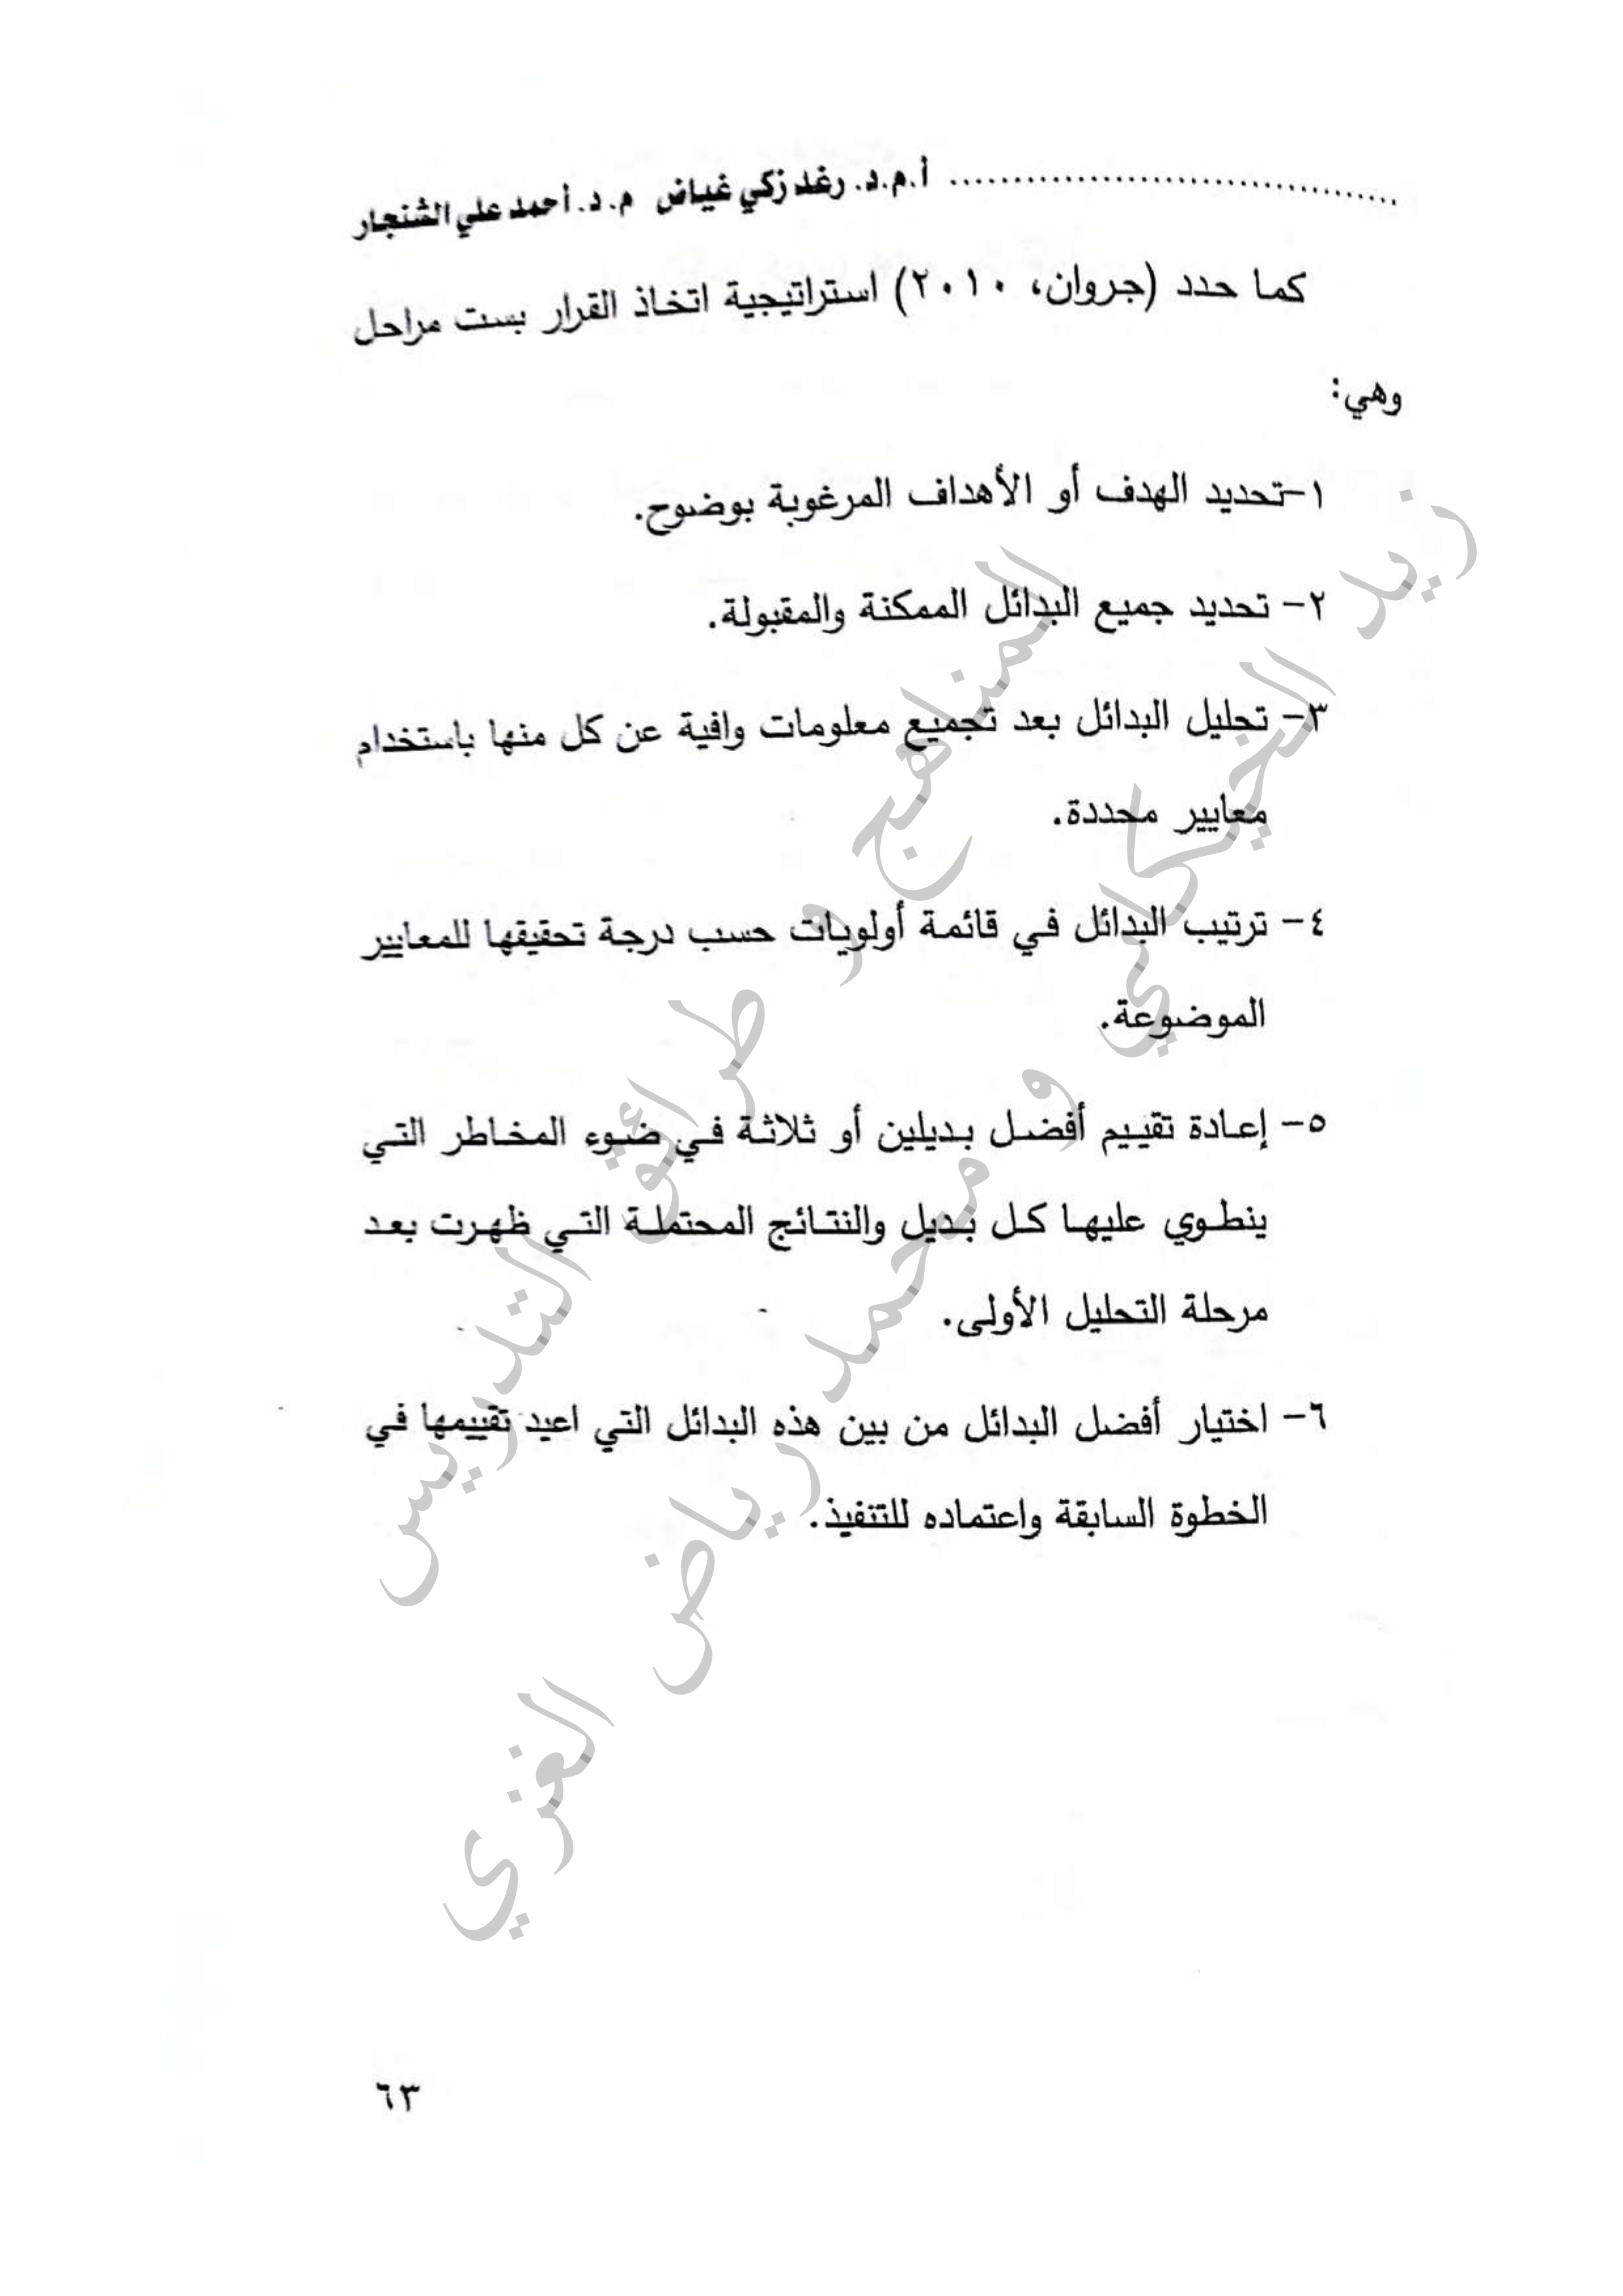 أ.م.د. رغد زكي غياض م.د. أحمد علي الشنجار
كما حدد (جروان، ٢٠١٠) استراتيجية اتخاذ القرار بست مراحل
وهي:
١-تحديد الهدف أو الأهداف المرغوبة بوضوح.
٢- تحديد جميع البدائل الممكنة والمقبولة.
٣- تحليل البدائل بعد تجميع معلومات وافية عن كل منها باستخدام
معايير محددة.
٤- ترتيب البدائل في قائمة أولويات حسب درجة تحقيقها للمعايير
الموضوعة.
٥- إعادة تقييم أفضل بديلين أو ثلاثة في ضوء المخاطر التي
ينطوي عليها كل بديل والنتائج المحتملة التي ظهرت بعد
مرحلة التحليل الأولى.
٦- اختيار أفضل البدائل من بين هذه البدائل التي اعيد تقييمها في
الخطوة السابقة واعتماده للتنفيذ.
٦٣
المناهج و طرائق التدريس
زيد الخيكاني و محمد رياض الغزي